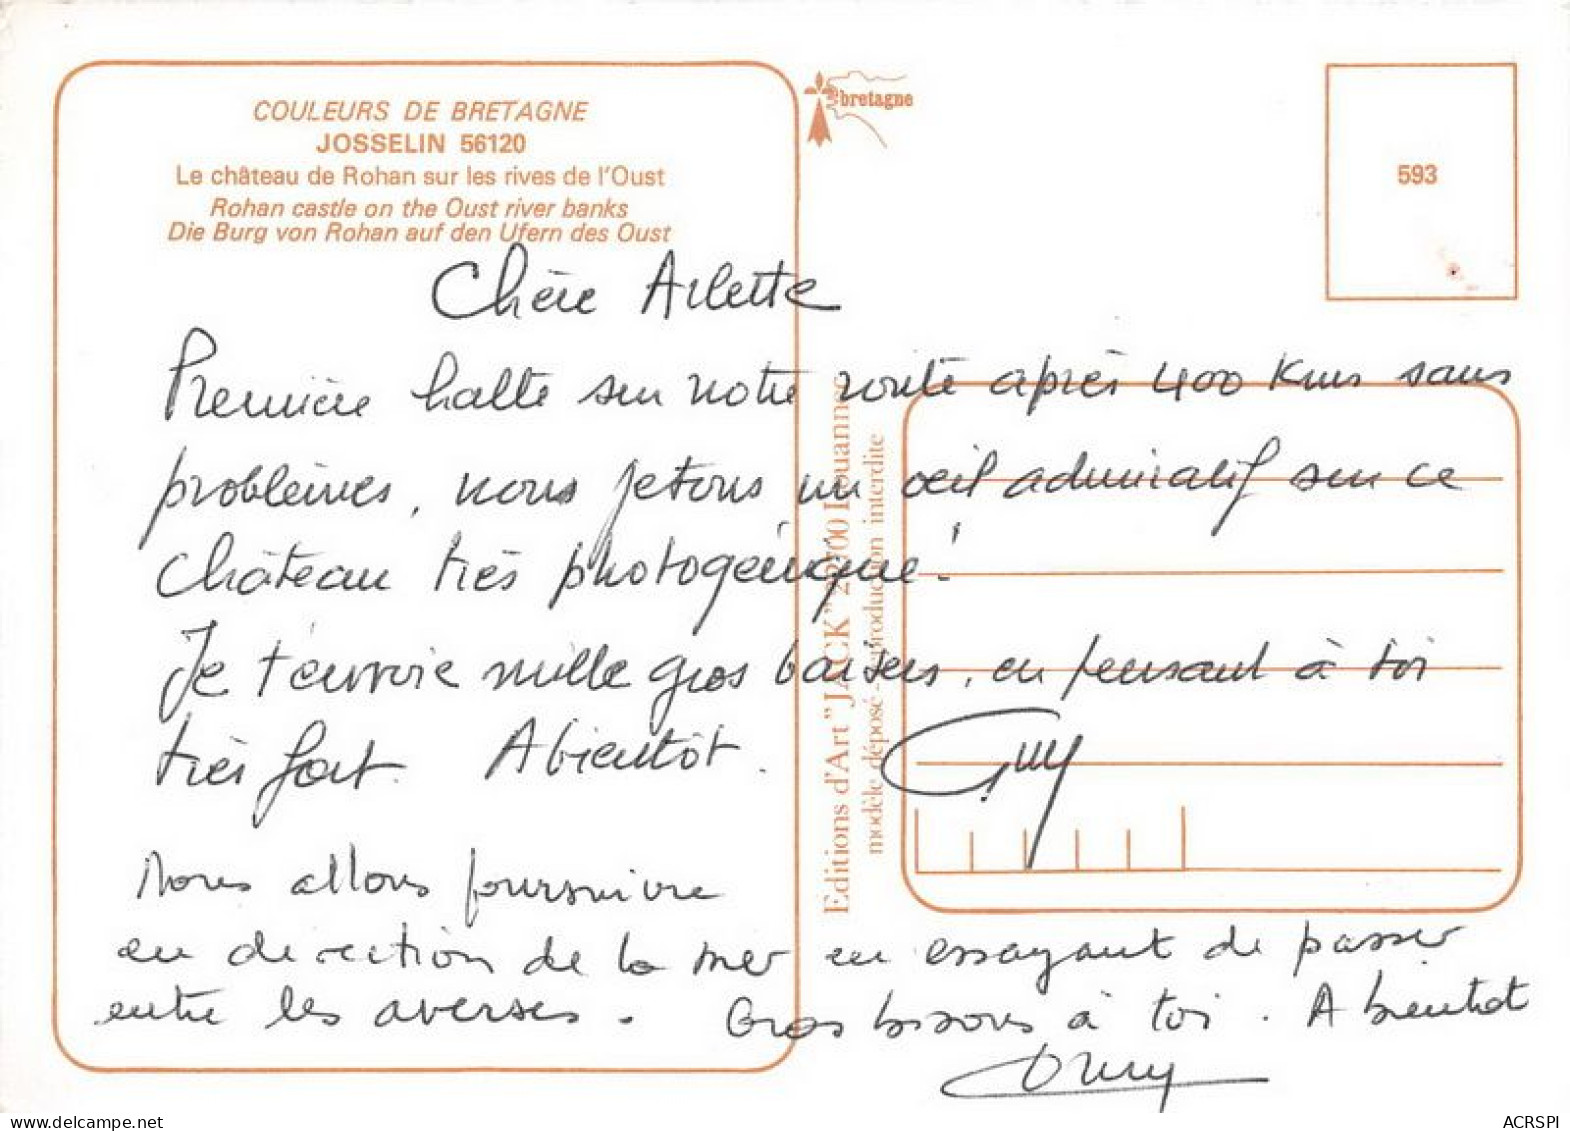 COULEURS DE BRETAGNE
JOSSELIN 56120
Le château de Rohan sur les rives de l'Oust
Rohan castle on the Oust river banks
Die Burg von Rohan auf den Ufern des Oust
bretagne
593
Chère Arlette
Première halte sur notre route après 400 Kms sans
problèmes, nous jetons un oeil admiratif sur ce
château très photogénique!
Je t'envoie mille gros baisers, en pensant à toi
très fort. A bientôt.
Guy
Nous allons poursuivre
en direction de la mer en essayant de passer
entre les averses. Gros bisous à toi. A bientot
Editions d'Art "JACK"
modèle déposé - reproduction interdite
ACRSPI